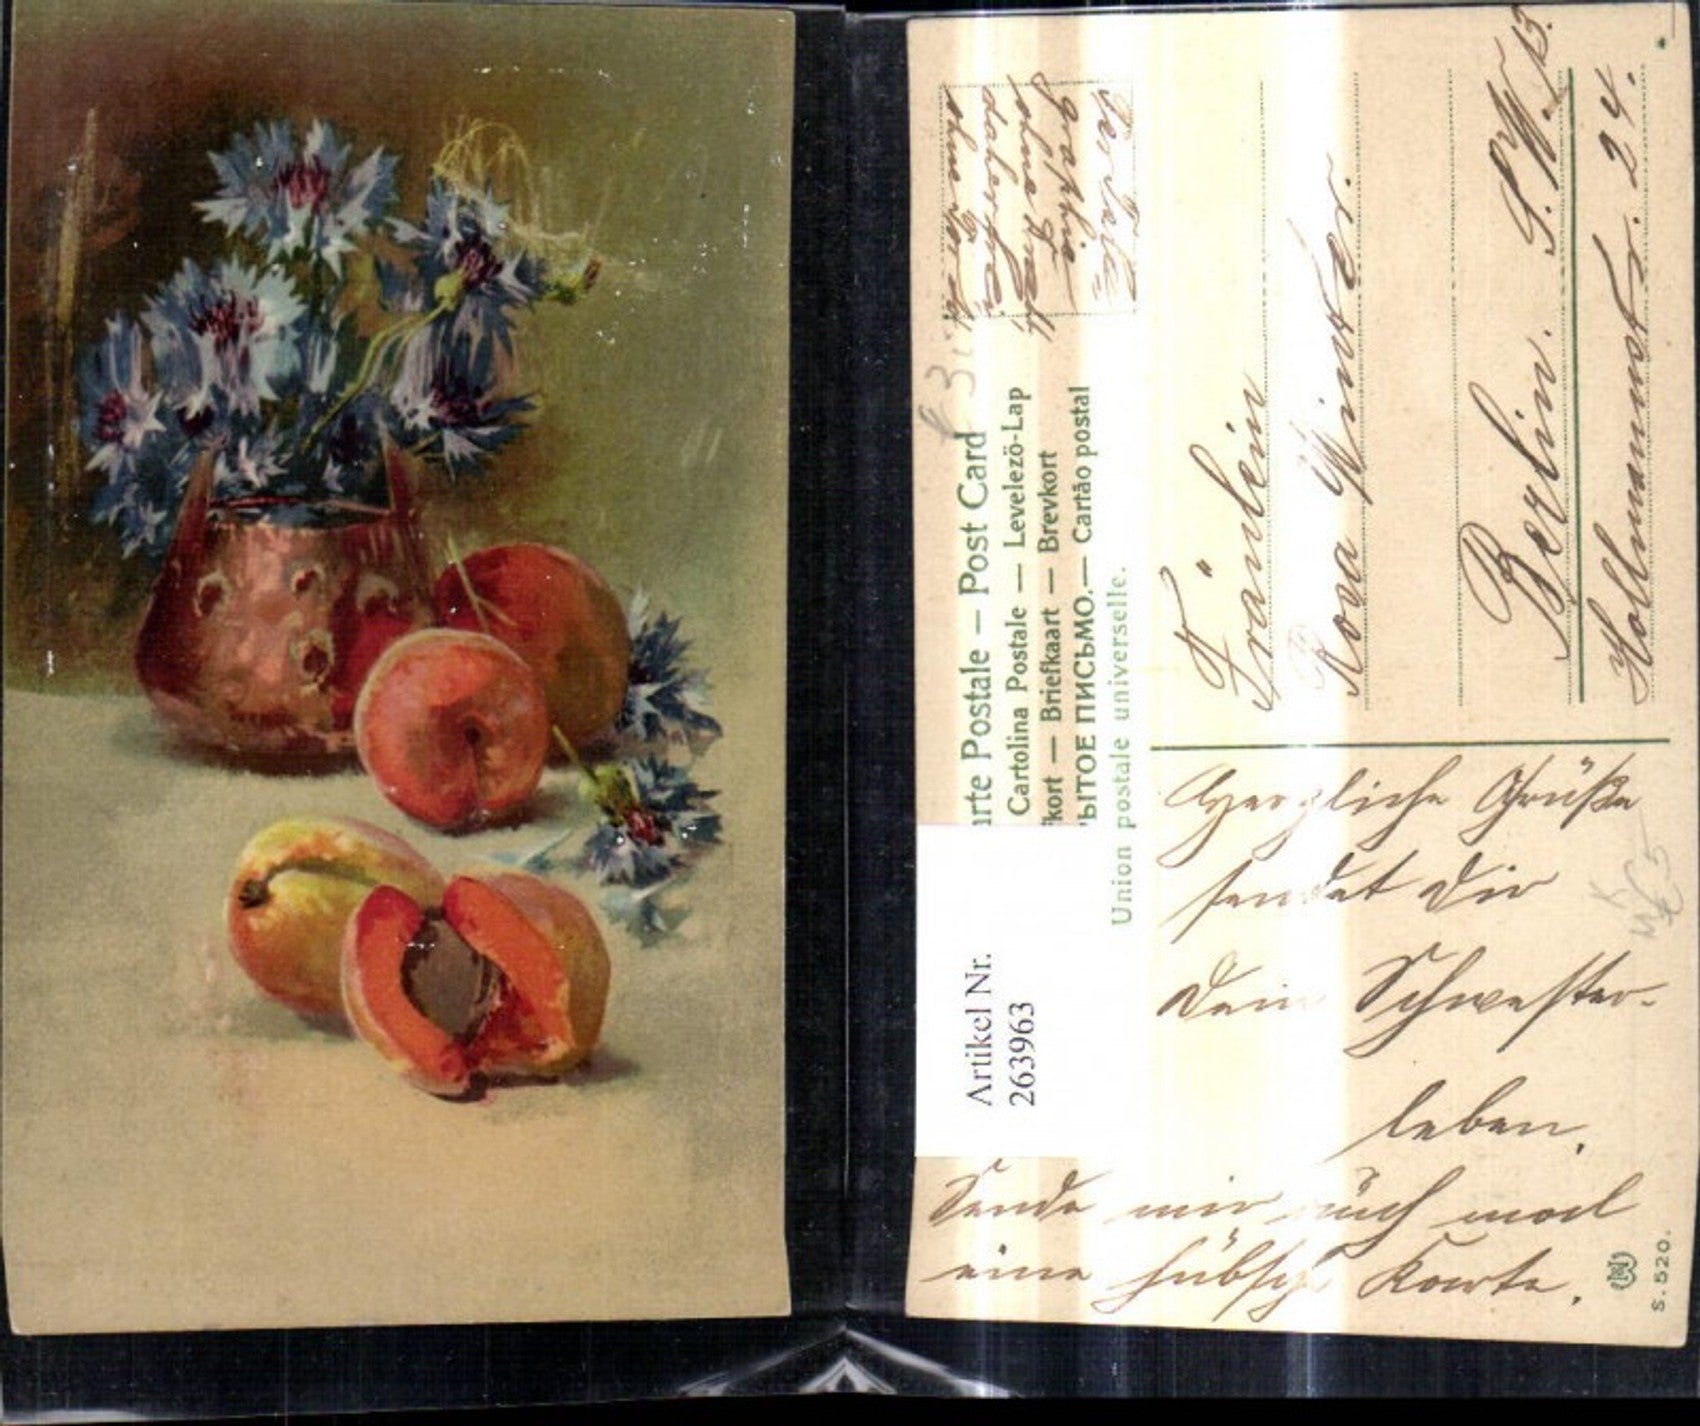 arte Postale — Post Card
Cartolina Postale — Levelező-Lap
fkort — Briefkaart — Brevkort
РЫТОЕ ПИСЬМО.— Cartão postal
Union postale universelle.
Artikel Nr.
263963
Fräulein
Rosa Winter.
Berlin. S.W. 13.
Hollmannstr. 24.
Herzliche Grüße
sendet Dir
Dein Schwester-
leben.
Sende mir auch mal
eine hübsche Karte.
S. 520.